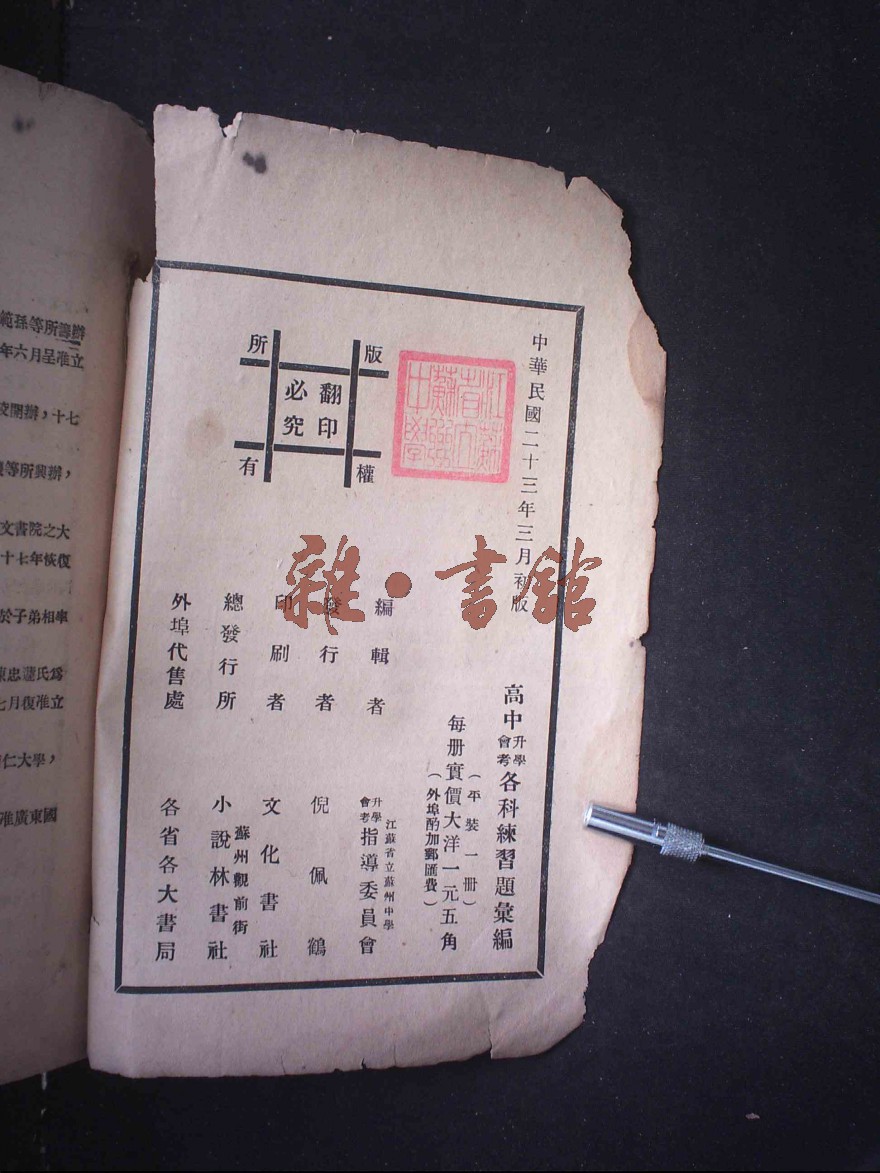 中華民國二十三年三月初版
高中升學會考各科練習題彙編
(平裝一冊)
每册實價大洋一元五角
(外埠酌加郵匯費)
編輯者 江蘇省立蘇州中學升學會考指導委員會
發行者 倪佩鶴
印刷者 文化書社
總發行所 蘇州觀前街小說林書社
外埠代售處 各省各大書局
版權所有
翻印必究
江蘇省立蘇州中學
雜·書館
範孫等所籌辦
年六月呈准立
校開辦，十七
等所興辦，
文書院之大
十七年恢復
於子弟相率
陳忠藎氏爲
七月復准立
仁大學，
准廣東國